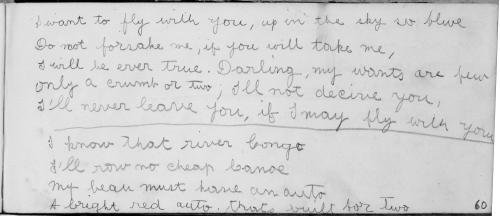 I want to fly with you, up in the sky so blue
Do not forsake me, if you will take me,
I will be ever true. Darling, my wants are few
only a crumb or two, I'll not decive you,
I'll never leave you, if I may fly with you
I know that river Congo
I'll row no cheap canoe
My beau must have an auto
A bright red auto. thats built for two
60